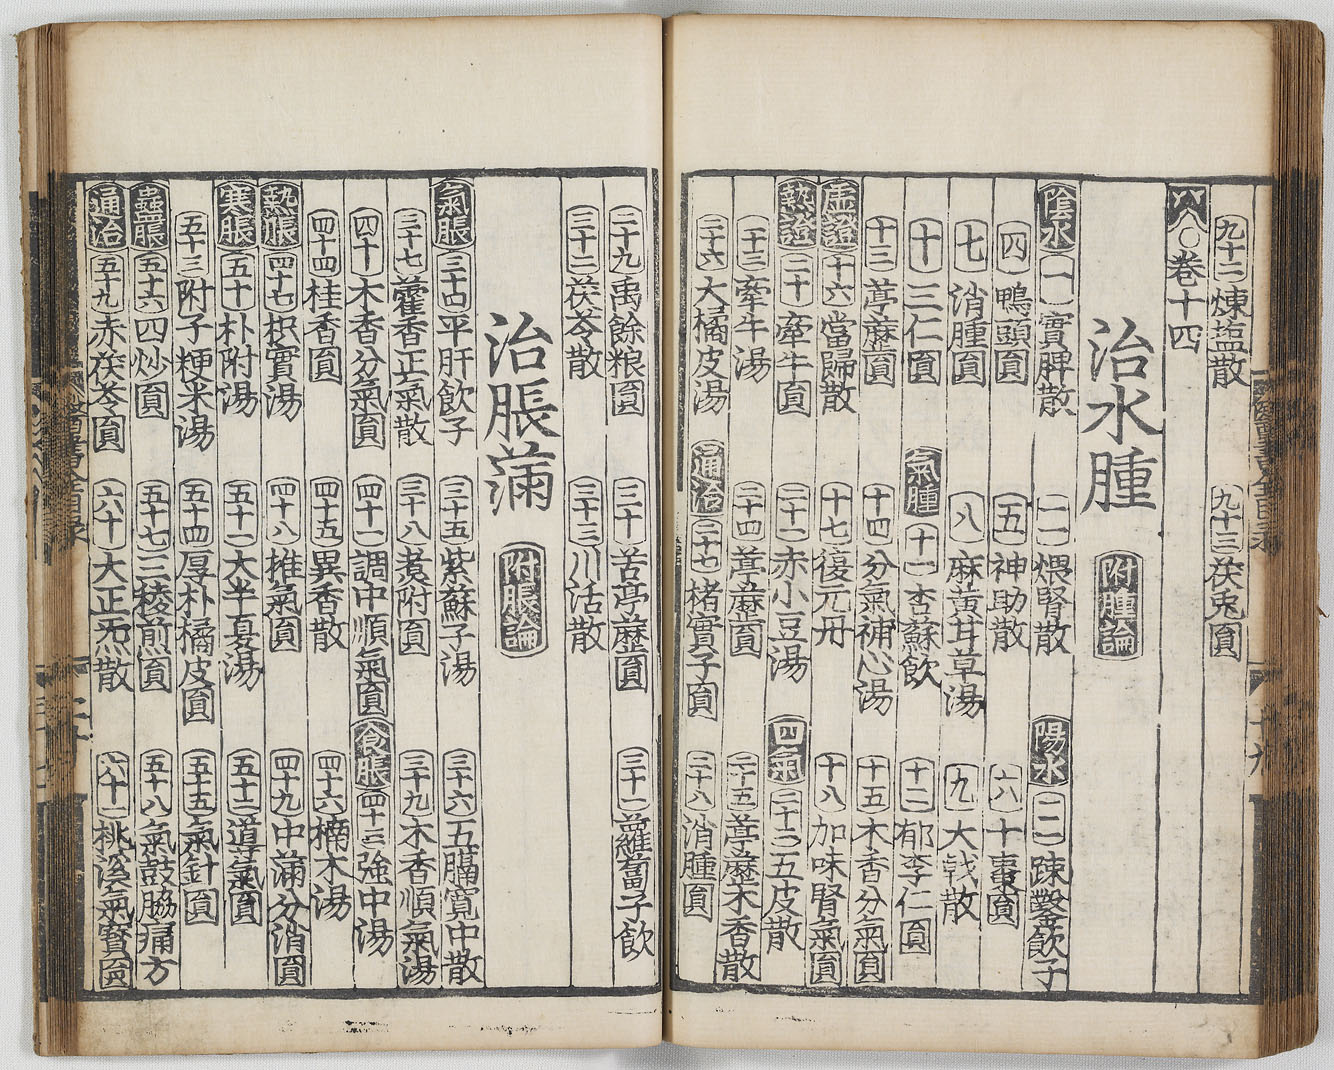 九十二煉塩散 九十三茯兎圓
〇卷十四
治水腫 附腫論
陰水 一實脾散 二煨腎散 陽水 三踈鑿飲子
四鴨頭圓 五神助散 六十棗圓
七消腫圓 八麻黄甘草湯 九大戟散
十三仁圓 氣腫 十一杏蘇飲 十二郁李仁圓
十三葶藶圓 十四分氣補心湯 十五木香分氣圓
虚證 十六當歸散 十七復元丹 十八加味腎氣圓
熱證 二十牽牛圓 二十一赤小豆湯 四氣 二十二五皮散
二十三牽牛湯 二十四葶藶圓 二十五葶藶木香散
二十六大橘皮湯 通治 二十七楮實子圓 二十八消腫圓
二十九禹餘粮圓 三十苦葶藶圓 三十一蘿蔔子飲
三十二茯苓散 三十三川活散
治脹滿 附脹論
氣脹 三十四平肝飲子 三十五紫蘇子湯 三十六五膈寛中散
三十七藿香正氣散 三十八煮附圓 三十九木香順氣湯
四十木香分氣圓 四十一調中順氣圓 食脹 四十三強中湯
四十四桂香圓 四十五異香散 四十六楠木湯
熱脹 四十七枳實湯 四十八推氣圓 四十九中滿分消圓
寒脹 五十朴附湯 五十一大半夏湯 五十二導氣圓
五十三附子粳米湯 五十四厚朴橘皮圓 五十五氣針圓
蠱脹 五十六四炒圓 五十七三稜煎圓 五十八氣鼓脇痛方
通治 五十九赤茯苓圓 六十大正炁散 六十一桃溪氣寳圓